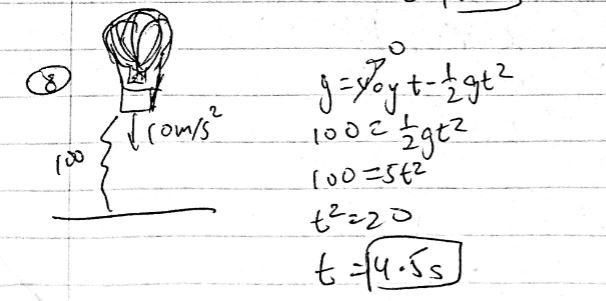 8
10m/s²
100
0
y = V₀y t - ½gt²
100 = ½gt²
100 = 5t²
t² = 20
t = 4.5s